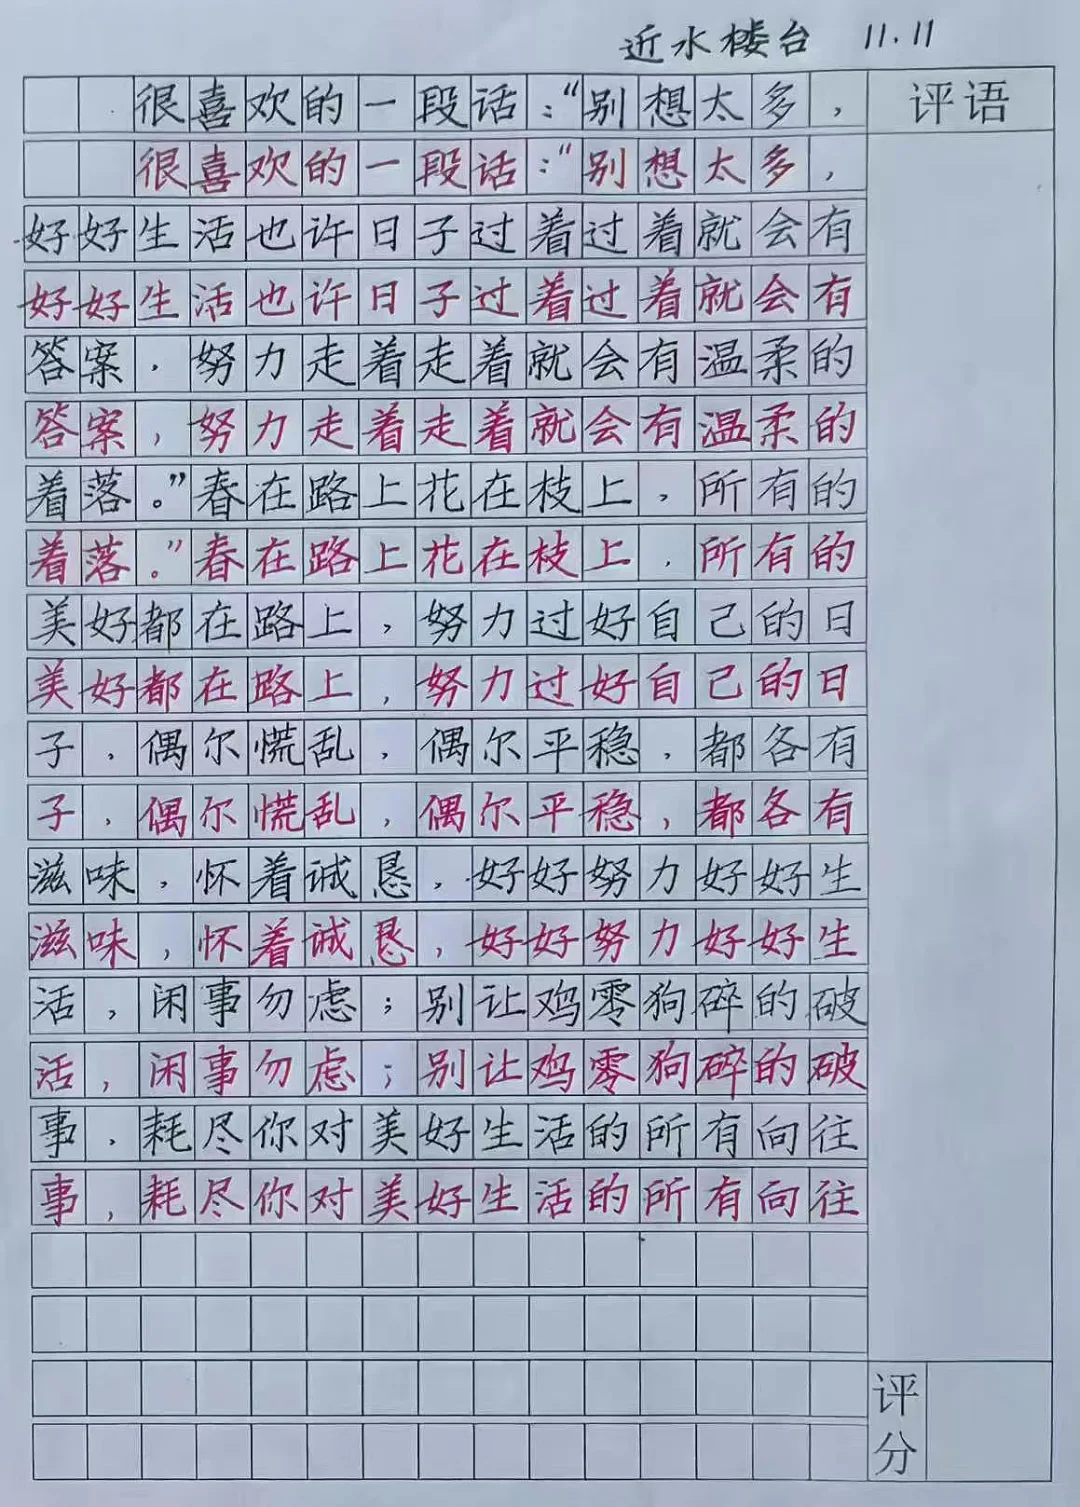 近水楼台 11.11
很喜欢的一段话："别想太多， 评语
很喜欢的一段话："别想太多，
好好生活也许日子过着过着就会有
好好生活也许日子过着过着就会有
答案，努力走着走着就会有温柔的
答案，努力走着走着就会有温柔的
着落。"春在路上花在枝上，所有的
着落。"春在路上花在枝上，所有的
美好都在路上，努力过好自己的日
美好都在路上，努力过好自己的日
子，偶尔慌乱，偶尔平稳，都各有
子，偶尔慌乱，偶尔平稳，都各有
滋味，怀着诚恳，好好努力好好生
滋味，怀着诚恳，好好努力好好生
活，闲事勿虑；别让鸡零狗碎的破
活，闲事勿虑；别让鸡零狗碎的破
事，耗尽你对美好生活的所有向往
事，耗尽你对美好生活的所有向往
评分